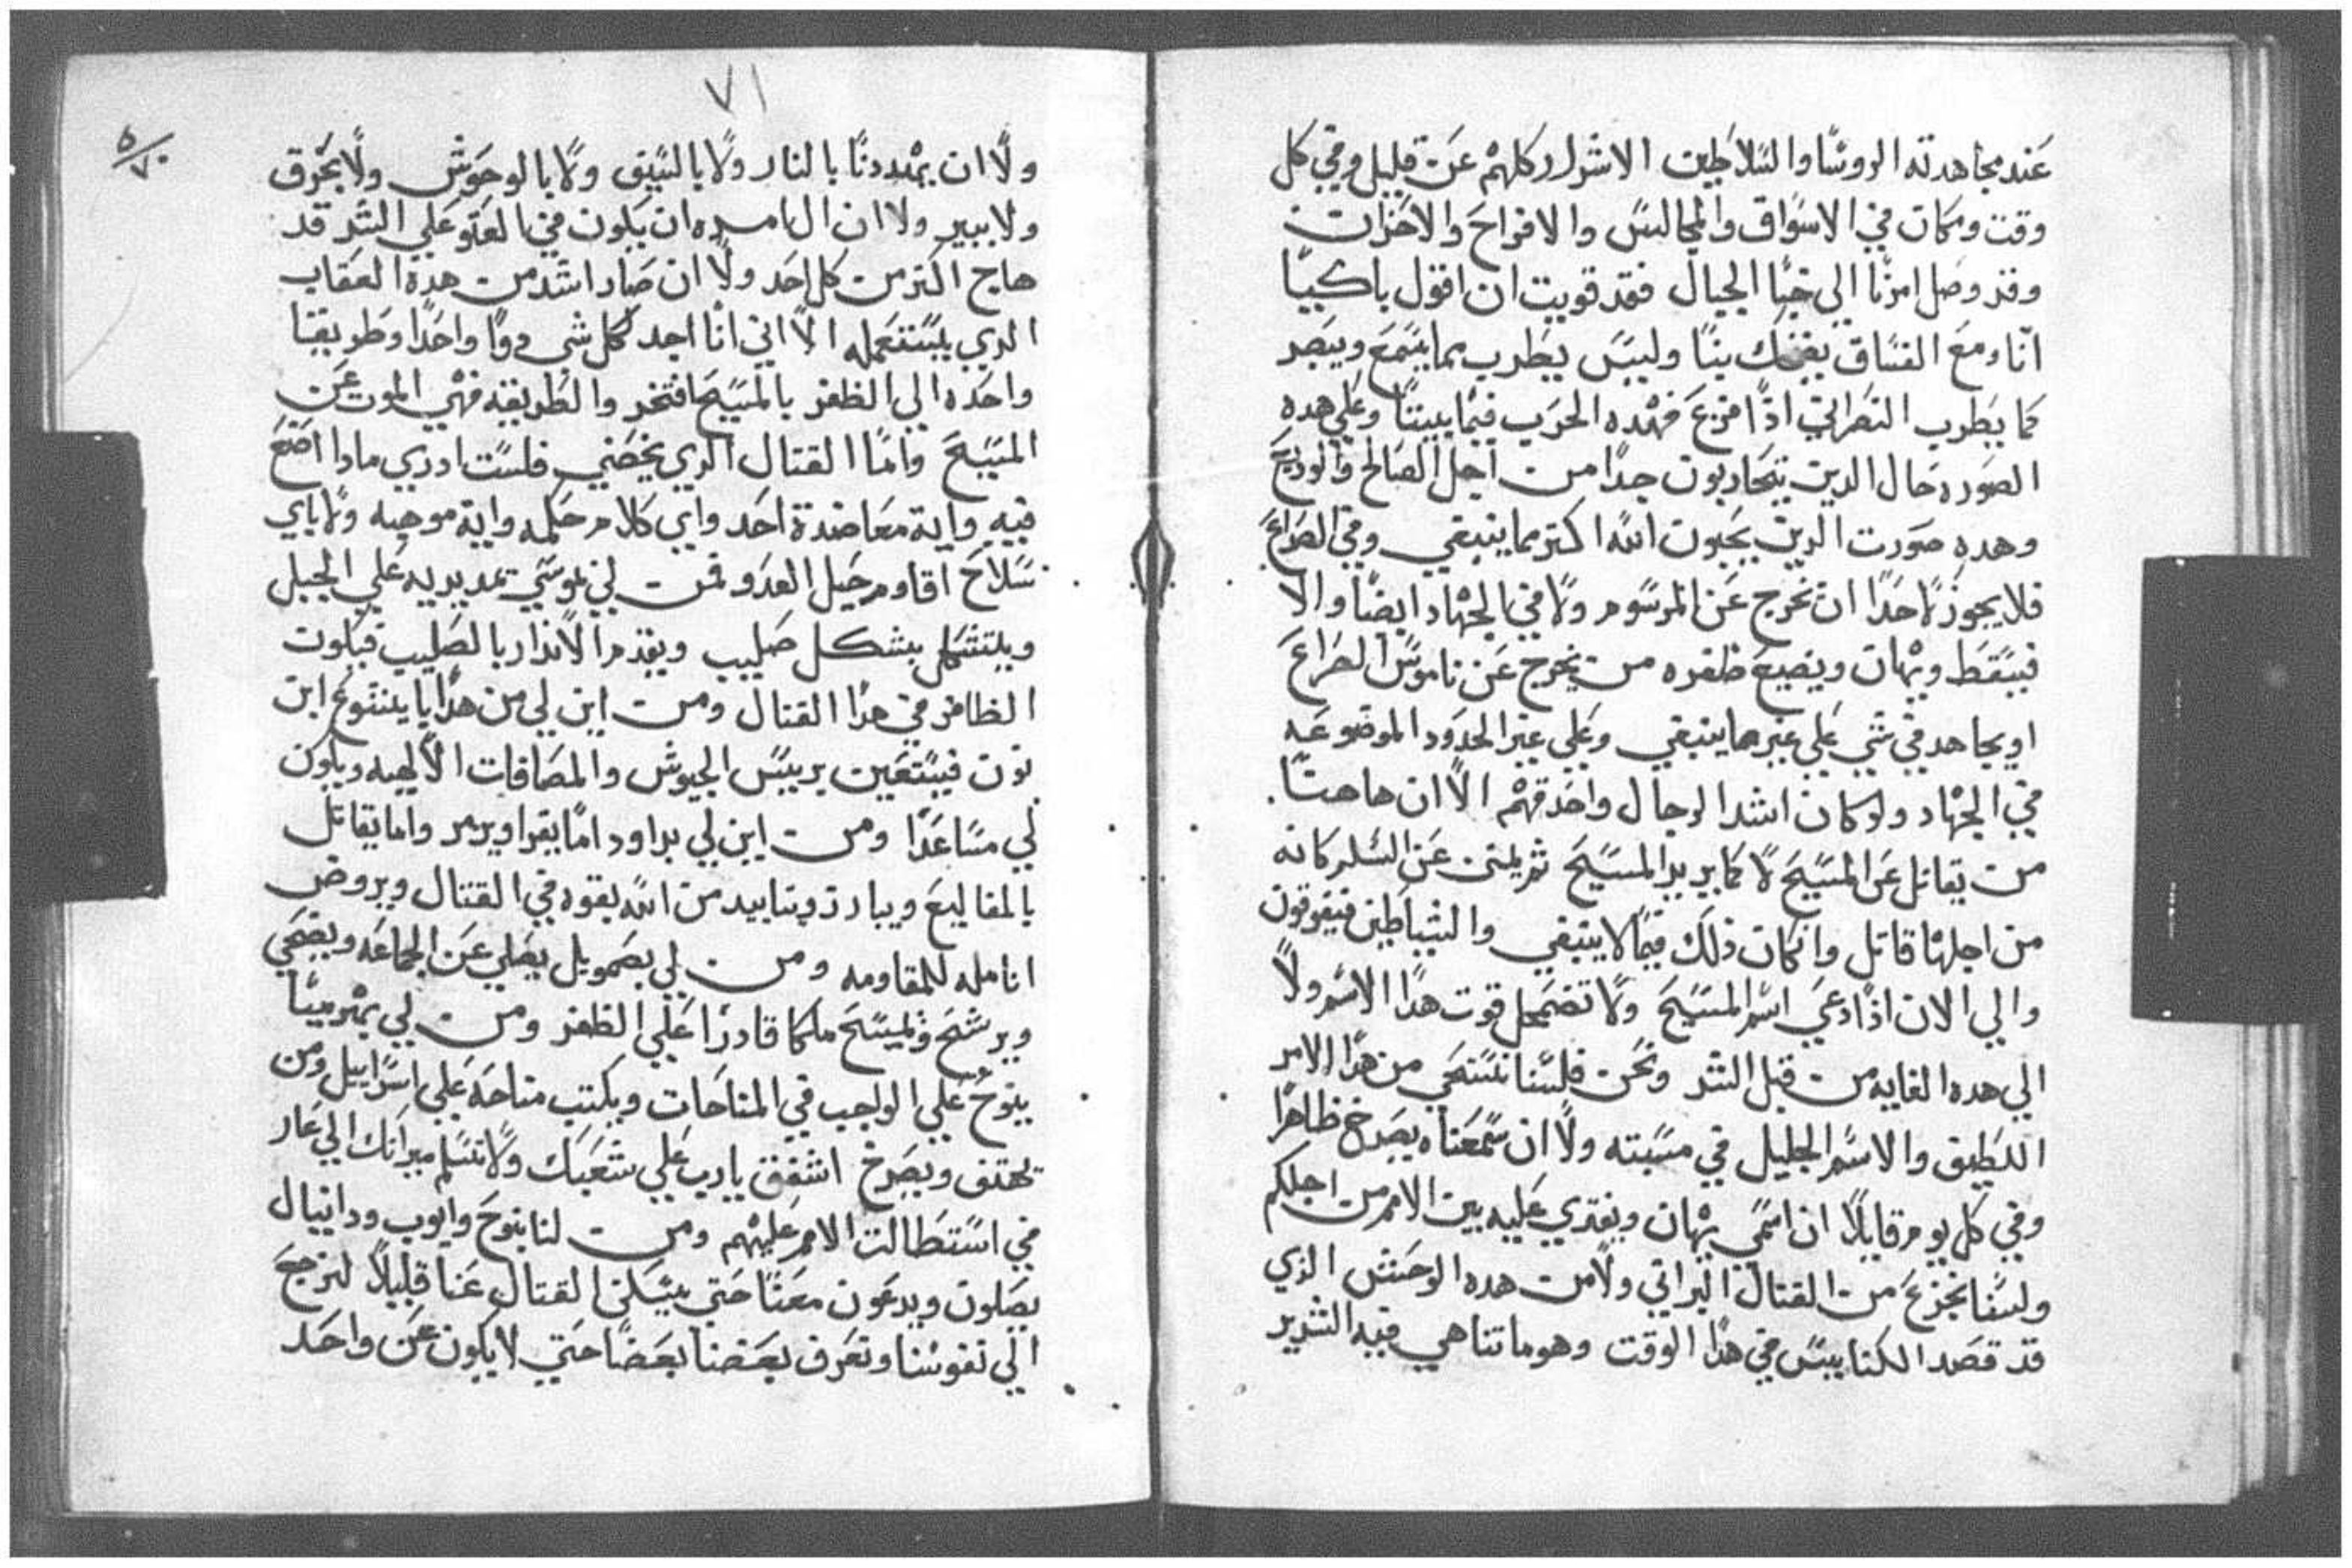 عند مجاهدته الروسا والسلاطين الاشرار كلهم عن قليل وفي كل
وقت ومكان في الاسواق والمجالس والافراح والاحزان
وقد وصل امرنا الي خبا الجبال فقد قويت ان اقول باكيا
انا ومع الفساق يضحك بنا وليس يطرب مما يسمع ويبصر
كما يطرب النصراني اذا مزع فهده الحرب فيما بيننا وعلي هده
الصوره حال الدين يتحاربون جدا من اجل الصالح والوديع
وهده صورت الدين يحبون الله اكتر مما ينبغي وفي الصراع
فلا يجوز لاحدا ان يخرج عن المرسوم ولا في الجهاد ايضا والا
فيسقط ويهان ويضيع ظفره من يخرج عن ناموس الصراع
او يجاهد في شي علي غير ما ينبغي وعلي غير الحدود الموضوعه
في الجهاد ولو كان اشد الرجال واحدقهم الا ان هاهنا
من يقاتل عن المسيح لا كما يريد المسيح ثم عن السلم كانه
من اجلها قاتل وان كان ذلك فيما لا ينبغي والشياطين فيفرقون
والي الان اذا دعي اسم المسيح ولا تضمحل قوت هدا الاسم ولا
الي هده الغايه من قبل الشر ونحن فلسنا نستحي من هدا الامر
اللطيف والاسم الجليل في مسبته ولا ان سمعناه يصرخ ظاهرا
وفي كل يوم قايلا ان اسمي يهان ويفتري عليه بين الامم من اجلكم
ولسنا نجزع من القتال البراني ولا من هده الوحش الذي
قد قصد الكنايس في هدا الوقت وهو ما تناهي فيه الشرير
٧١
٥/٧٠
ولا ان يهددنا بالنار ولا بالسيف ولا بالوحوش ولا بحرق
ولا ببير ولا ان ان يكون في العتو علي الشر قد
هاج اكتر من كل احد ولا ان صار اشد من هده العقاب
الدي يستعمله الا اني انا اجد لكل شي دوا واحدا وطريقا
واحده الي الظفر بالمسيح افتخر والطريقه فهي الموت عن
المسيح واما القتال الدي يخصني فلست ادري مادا اصنع
فيه واية معاضدة احد واي كلام حكمه واية موهبه ولا باي
سلاح اقاوم حيل العدو فمن لي بموسي يمد يديه علي الجبل
ويتشكل بشكل صليب ويقدم الانذار بالصليب فيكون
الظافر في هدا القتال ومن اين لي من هدا بايشوع ابن
نون فيستعين بريس الجيوش والمصافات الالهيه ويكون
لي مساعدا ومن اين لي بداود اما يقرا ويزمر واما يقاتل
بالمقاليع ويبارز وبتاييد من الله يقوه في القتال ويروض
انامله للمقاومه ومن لي بصمويل يصلي عن الجماعه ويضحي
ويرشح ويمسح ملكا قادرا علي الظفر ومن لي بهرميا
ينوح علي الواجب في المناحات ويكتب مناحه علي اسراييل ومن
يهتف ويصرخ اشفق يارب علي شعبك ولا تسلم ميراتك الي عار
في استطالت الامم عليهم ومن لنا بنوح وايوب ودانيال
يصلون ويدعون معنا حتي يسكن القتال عنا قليلا لنرجع
الي نفوسنا ونعرف بعضنا بعضا حتي لا يكون عن واحد